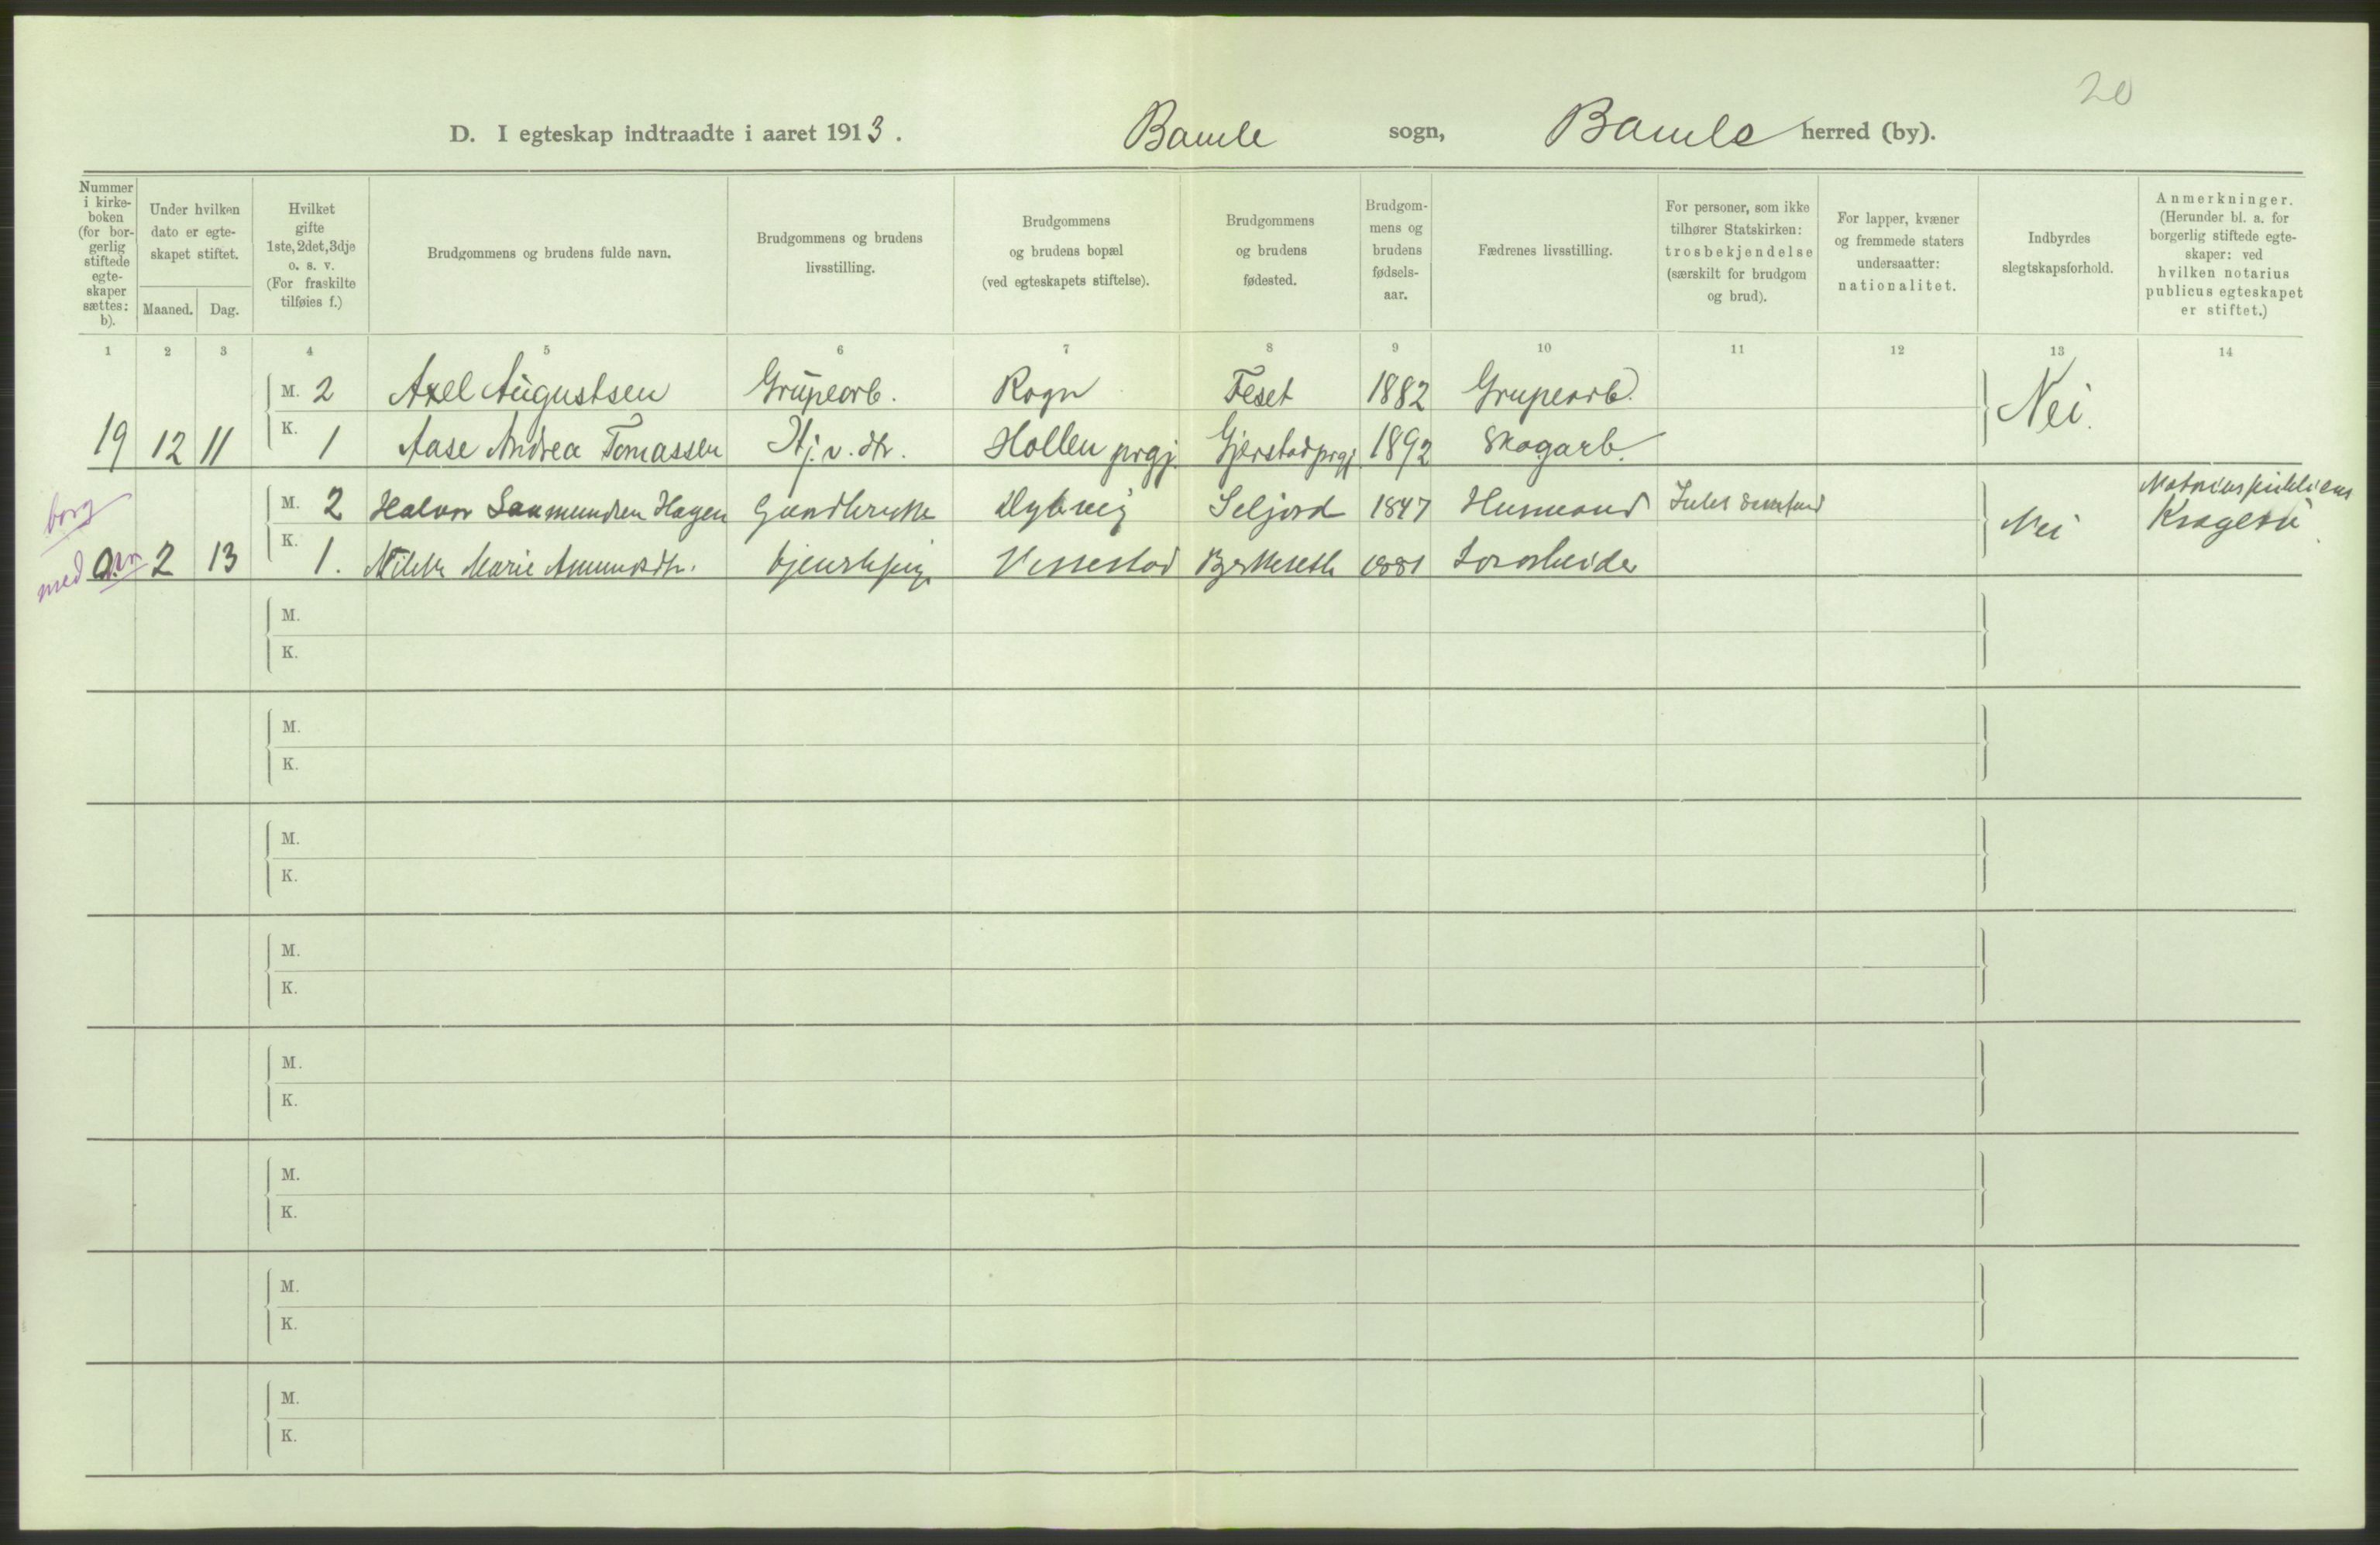 20
D. I egteskap indtraadte i aaret 1913. Bamle sogn, Bamle herred (by).
Nummer
i kirke-
boken
(for bor-
gerlig
stiftede
egte-
skaper
sættes:
b).
Under hvilken
dato er egte-
skapet stiftet.
Maaned. Dag.
Hvilket
gifte
1ste, 2det, 3dje
o. s. v.
(For fraskilte
tilføies f.)
Brudgommens og brudens fulde navn.
Brudgommens og brudens
livsstilling.
Brudgommens
og brudens bopæl
(ved egteskapets stiftelse).
Brudgommens
og brudens
fødested.
Brudgom-
mens og
brudens
fødsels-
aar.
Fædrenes livsstilling.
For personer, som ikke
tilhører Statskirken:
trosbekjendelse
(særskilt for brudgom
og brud).
For lapper, kvæner
og fremmede staters
undersaatter:
nationalitet.
Indbyrdes
slegtskapsforhold.
Anmerkninger.
(Herunder bl. a. for
borgerlig stiftede egte-
skaper: ved
hvilken notarius
publicus egteskapet
er stiftet.)
1 2 3 4 5 6 7 8 9 10 11 12 13 14
M. 2 Axel Augustsen Grupearb. Rogn Feset 1882 Grupearb. Nei.
19 12 11 K. 1 Aase Andrea Tomassen Hj. v. dtr. Hollen prgj. Gjerstad prgj. 1892 Skogarb.
borg
M. 2 Halvor Saamundsen Hagen Gaardbruker Seljord 1847 Husmand Nei Notarius publicus
Kragerø
med 2 13 K. 1. Marie Amundsdtr. Vissestad 1881
M.
K.
M.
K.
M.
K.
M.
K.
M.
K.
M.
K.
M.
K.
M.
K.